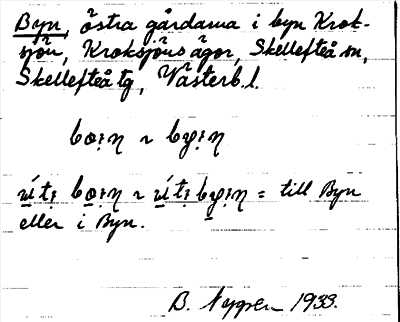 Byn, östra gårdarna i byn Krok-
sjön, Kroksjöns ägor, Skellefteå sn,
Skellefteå tg, Västerb. l.
~
~ = till Byn
eller i Byn.
B. Nygren 1933.